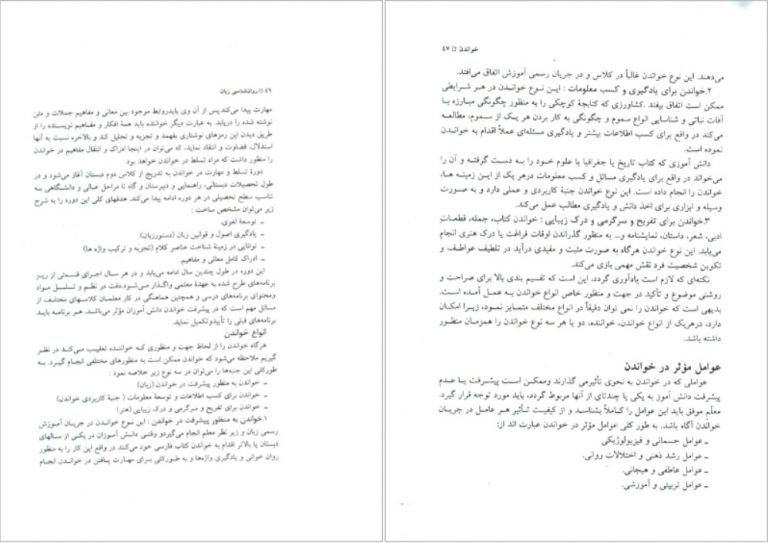 ۴۶ □ روان‌شناسی زبان
مهارت پیدا می‌کند.پس از آن وی بایدروابط موجود بین معانی و مفاهیم جملات و متن
نوشته شده را دریابد. به عبارت دیگر خواننده باید همهٔ افکار و مفاهیم نویسنده را از
طریق دیدن این رمزهای نوشتاری بفهمد و تجزیه و تحلیل کند و بالاخره نسبت به آنها
استدلال، قضاوت و انتقاد نماید، که می‌توان در اینجا ادراک و انتقال مفاهیم در خواندن
را منظور داشت که مراد تسلط در خواندن خواهد بود.
دورهٔ تسلط و مهارت در خواندن به تدریج از کلاس دوم دبستان آغاز می‌شود و در
طول تحصیلات دبستانی، راهنمایی و دبیرستان و گاه تا مراحل عـالی و دانشگاهی بـه
تناسب سطح تحصیلی در هر دوره ادامه پیدا می‌کند. هدفهای کلی این دوره را به شرح
زیر می‌توان مشخص ساخت :
ـ توسعهٔ لغوی.
ـ یادگیری اصول و قوانین زبان (دستورزبان)
ـ توانایی در زمینهٔ شناخت عناصر کلام (تجزیه و ترکیب واژه ها)
ـ ادراک کامل معانی و مفاهیم.
این دوره در طول چندین سال ادامه می‌یابد و در هر سـال اجـرای قسـمتی از ریـز
برنامه‌های طرح شده به عهدهٔ معلمی واگـذار می‌شـود.دقت در نظـم و تسلسل مـواد
ومحتوای برنامه‌های درسی و همچنین هماهنگی در کار معلمـان کلاسهای مختلـف از
مسائل مهم است که در پیشرفت خواندن دانش آموزان مؤثر می‌باشـد. هـر برنامـه بایـد
برنامه‌های قبلی را تأییدوتکمیل نماید.
انواع خواندن
هرگاه خواندن را از لحاظ جهت و منظوری کـه خواننده تعقیـب می‌کـند در نظـر
گیریم ملاحظه می‌شود که خواندن ممکن است به منظورهای مختلفی انجـام گیـرد. بـه
طورکلی این جنبه‌ها را می‌توان در سه نوع زیر خلاصه نمود :
ـ خواندن به منظور پیشرفت در خواندن(زبان)
ـ خواندن برای کسب اطلاعات و توسعهٔ معلومات ( جنبهٔ کاربردی خواندن)
ـ خواندن برای تفریح و سرگرمی و درک زیبایی (هنر)
۱.خواندن به منظور پیشرفت در خواندن : این نوع خواندن در جریـان آمـوزش
رسمی زبان و زیر نظر معلم انجام می‌گیردو وقتـی دانش آموزان در یکـی از سـالهای
دبستان یا بالاتر اقدام به خواندن کتاب فارسی خود می‌کنند در واقع این کار را به منظور
روان خوانی و یادگیری واژه‌ها و به طورکلی بـرای مهـارت یـافتن در خوانـدن انجـام
خواندن □ ۴۷
می‌دهند. این نوع خواندن غالباً در کلاس و در جریان رسمی آموزش اتفاق می‌افتد.
۲.خواندن برای یادگیری و کسب معلومات : ایـن نـوع خوانـدن در هـر شـرایطی
ممکن است اتفاق بیفتد. کشاورزی که کتابچهٔ کوچکی را به منظور چگونگی مبارزه بـا
آفات نباتی و شناسایی انواع سـموم و چگونگی به کار بردن هر یـک از سمـوم، مطالعـه
می‌کند در واقع برای کسب اطلاعات بیشتر و یادگیری مسئله‌ای عملاً اقدام به خوانـدن
نموده است.
دانش آموزی که کتاب تاریخ یا جغرافیا یا علوم خـود را بـه دسـت گرفتـه و آن را
می‌خواند در واقع برای یادگیری مسائل و کسب معلومات درهر یک از ایـن زمینـه هـا،
خواندن را انجام داده است. این نوع خواندن جنبهٔ کاربردی و عملی دارد و به صـورت
وسیله و ابزاری برای اخذ دانش و یادگیری مطالب عمل می‌کند.
۳.خواندن برای تفریح و سرگرمی و درک زیبـایی : خوانـدن کتاب، جمله، قطعـات
ادبی، شعر، داستان، نمایشنامه و... به منظور گذراندن اوقات فراغت یا درک هنری انجام
می‌یابد. این نوع خواندن هرگاه به صورت مثبت و مفیدی درآید در تلطیـف عواطـف و
تکوین شخصیت فرد نقش مهمی بازی می‌کند.
نکته‌ای که لازم است یادآوری گردد، این است که تقسیم بندی بالا برای صراحت و
روشنی موضوع و تأکید در جهت و منظور خاص انواع خوانـدن بـه عمـل آمـده اسـت.
بدیهی است که خواندن را نمی توان دقیقاً در انواع مختلف متمـایز نمود، زیـرا امکـان
دارد، درهریک از انواع خواندن، خواننده، دو یا هر سه نوع خواندن را همزمان منظور
داشته باشد.
عوامل مؤثر در خواندن
عواملی که در خواندن به نحوی تأثیرمی گذارند وممکـن اسـت پیشـرفت یـا عـدم
پیشرفت دانش آموز به یکی یا چندتای از آنها مربوط گردد، باید مورد توجه قرار گیرد.
معلّم موفق باید این عوامل را کـاملاً بشناسـد و از کیفیـت تـأثیر هـر عامـل در جریـان
خواندن آگاه باشد. به طور کلی عوامل مؤثر در خواندن عبارت اند از:
ـ عوامل جسمانی و فیزیولوژیکی
ـ عوامل رشد ذهنی و اختلالات روانی.
ـ عوامل عاطفی و هیجانی.
ـ عوامل تربیتی و آموزشی.